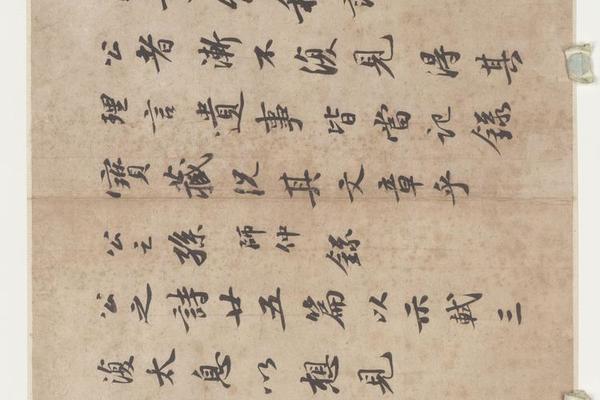 公者漸不復見得其
理言遺事皆當記錄
寶藏況其文章乎
公之孫師仲錄
公之詩廿五篇以示軾三
復太息以想見